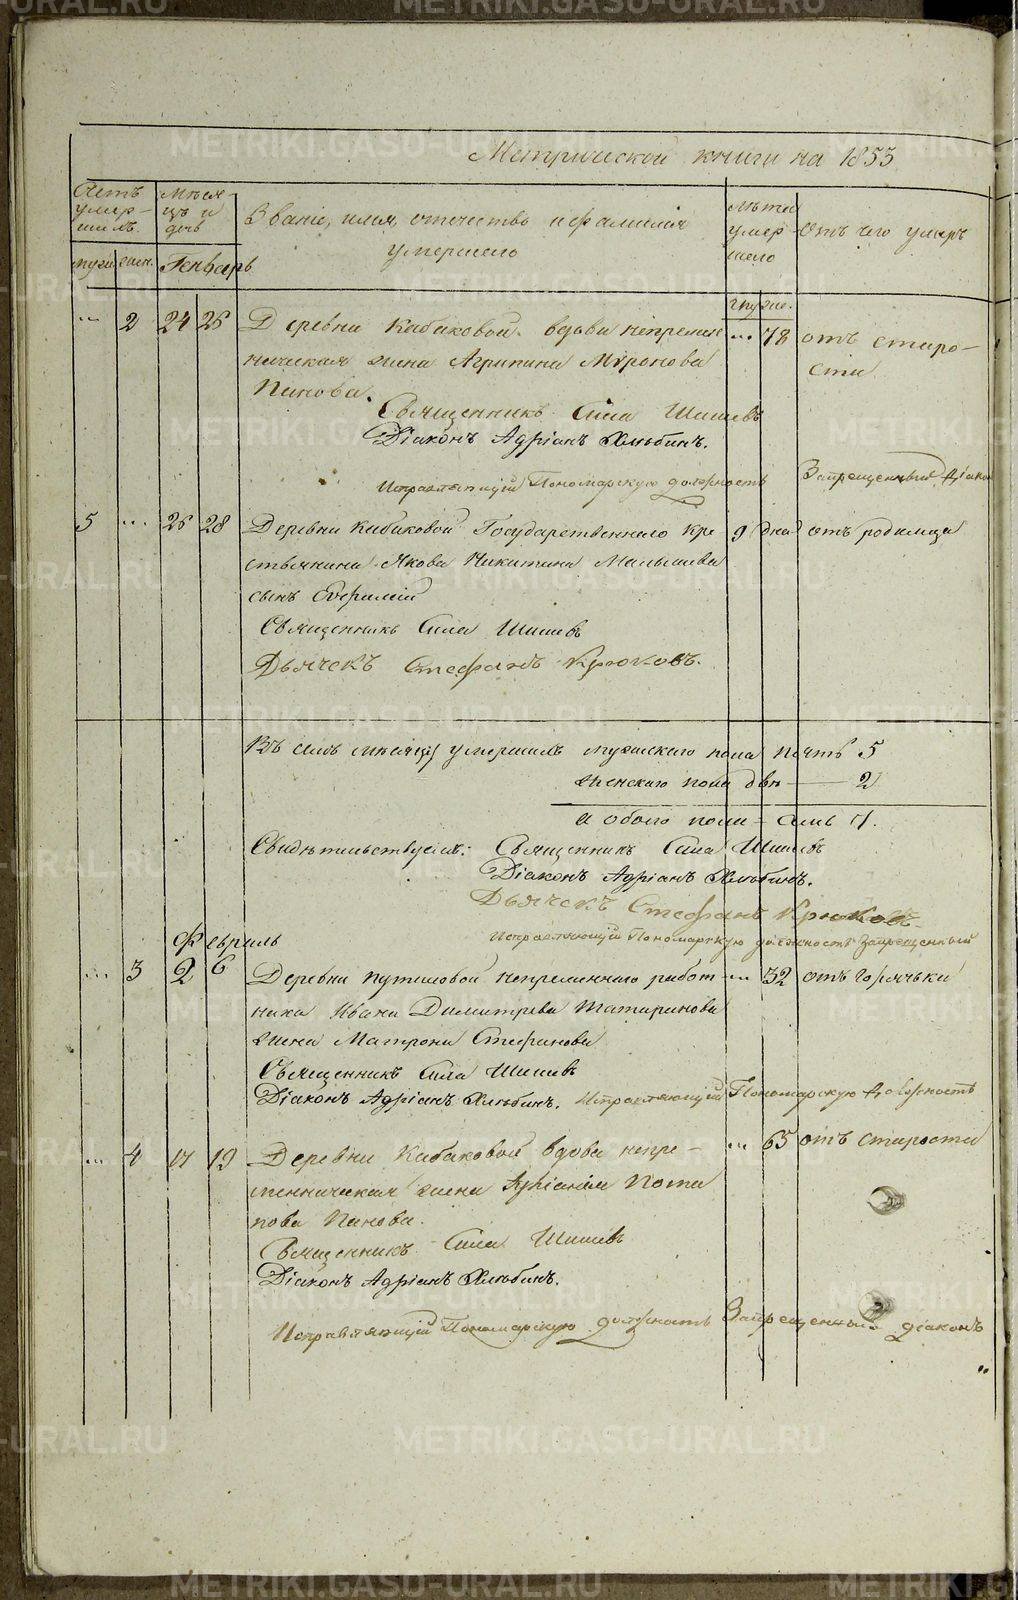 METRIKI.GASO-URAL.RU
Метрической книги на 1853
Счетъ умер- шихъ.
Мѣся цъ и день
Званіе, имя, отчество и фамилія умершаго
Лѣта умер шаго
Отъ чего умеръ
муж. жен. Генварь
муж. же.
... 2 24 26 Деревни Кабаковой вдова непремен ... 78 отъ старо-
ническая жена Агрипина Миронова сти.
Панова.
Священникъ Сила Шишевъ
Діаконъ Адріанъ Хлыбинъ.
Исправляющій Пономарскую должность Запрещенный діакон
5 ... 26 28 Деревни Кабаковой Государственнаго кре 9 дне отъ родимца
стьянина Якова Никитина Малышева
сынъ Ефримій
Священникъ Сила Шишевъ
Дьячекъ Стефанъ Крюковъ.
Въ семъ мѣсяцѣ умершихъ мужескаго пола пять 5
женскаго пола двѣ — 2
а обоего пола — семь 7.
Свидѣтельствуемъ: Священникъ Сила Шишевъ
Діаконъ Адріанъ Хлыбинъ.
Дьячекъ Стефанъ Крюковъ.
Исправляющій Пономарскую должность Запрещенный
Февраль
... 3 2 6 Деревни Путиловой непременнаго работ ... 32 отъ горячьки
ника Ивана Димитрева Татаринова
жена Матрона Стефанова
Священникъ Сила Шишевъ
Діаконъ Адріанъ Хлыбинъ. Исправляющій Пономарскую должность
... 4 17 19 Деревни Кабаковой вдова непре- ... 65 отъ старости
менническая жена Пота
пова Панова.
Священникъ Сила Шишевъ
Діаконъ Адріанъ Хлыбинъ.
Исправляющій Пономарскую должность Запрещенный діаконъ